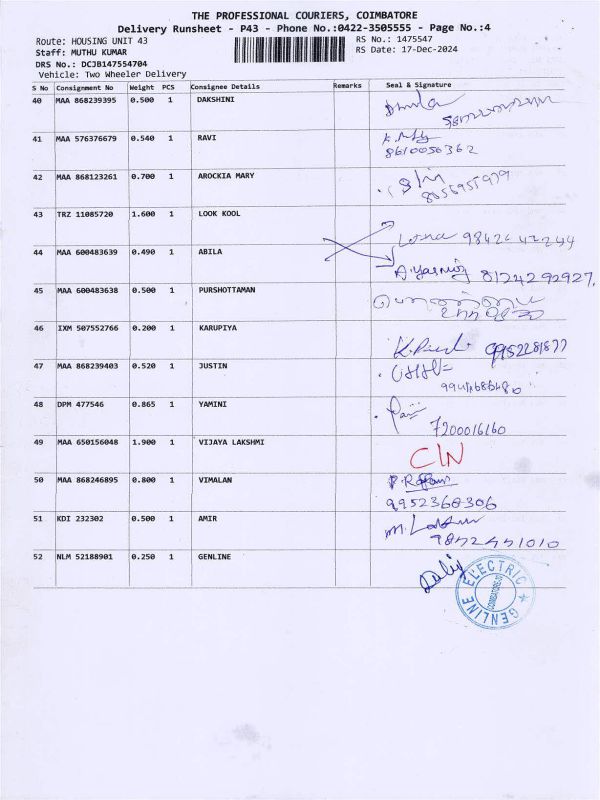 THE PROFESSIONAL COURIERS, COIMBATORE
Delivery Runsheet - P43 - Phone No.:0422-3505555 - Page No.:4
Route: HOUSING UNIT 43
RS No.: 1475547
Staff: MUTHU KUMAR
RS Date: 17-Dec-2024
DRS No.: DCJB147554704
Vehicle: Two Wheeler Delivery
S No Consignment No Weight PCS Consignee Details Remarks Seal & Signature
40 MAA 868239395 0.500 1 DAKSHINI
41 MAA 576376679 0.540 1 RAVI
8610056362
42 MAA 868123261 0.700 1 AROCKIA MARY
8056955979
43 TRZ 11085720 1.600 1 LOOK KOOL
44 MAA 600483639 0.490 1 ABILA
8124292927.
45 MAA 600483638 0.500 1 PURSHOTTAMAN
46 IXM 507552766 0.200 1 KARUPIYA
9952281877
47 MAA 868239403 0.520 1 JUSTIN
48 DPM 477546 0.865 1 YAMINI
7200016160
49 MAA 650156048 1.900 1 VIJAYA LAKSHMI
C/N
50 MAA 868246895 0.800 1 VIMALAN
9952368306
51 KDI 232302 0.500 1 AMIR
9842451010
52 NLM 52188901 0.250 1 GENLINE
GENLINE ELECTRIC